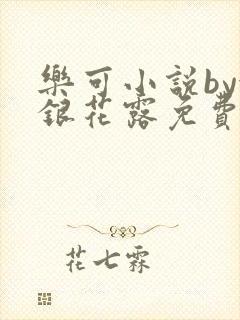 樂可小說by
銀花露免費
花七霖